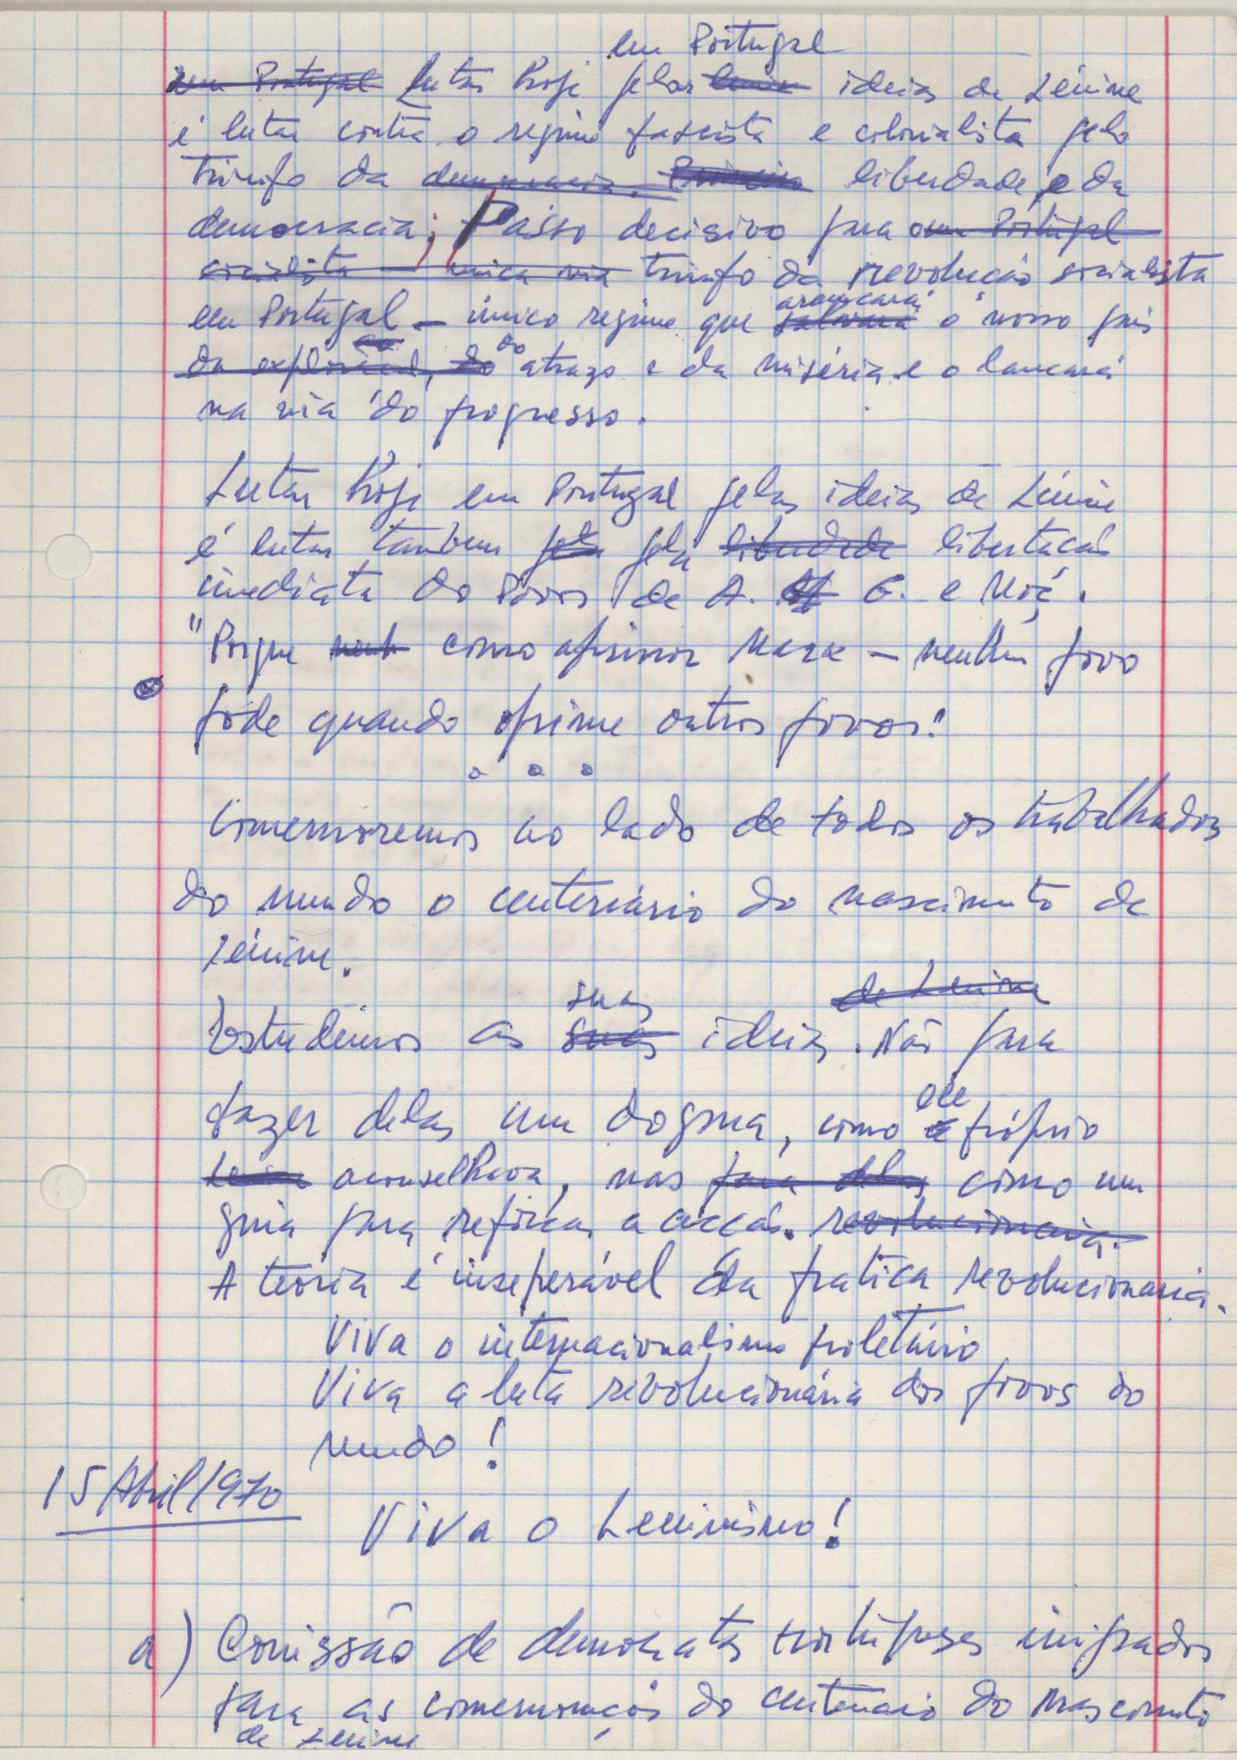 em Portugal
em Portugal Lutar hoje pelas ideias de Lénine
é lutar contra o regime fascista e colonialista pelo
triunfo da democracia. liberdade e da
democracia; Passo decisivo para o um Portugal
socialista — única via triunfo da revolução socialista
em Portugal — único regime que salvará arrancará o nosso país
da exploração, do do atrazo e da miséria e o lancará
na via do progresso.
Lutar hoje em Portugal pelas ideias de Lénine
é lutar tambem pela pela liberdade libertação
imediata dos Povos de A. G. e Moç.
"Porque como afirmou Marx — nenhum povo
pode quando oprime outros povos!
o o o
Comemoremos ao lado de todos os trabalhadores
do mundo o centenário do nascimento de
Lénine.
suas de Lenine
Estudemos as suas ideias. Não para
fazer delas um dogma, como ele próprio
aconselhava, mas para delas como um
guia para reforçar a acção. revolucionaria.
A teoria é inseperável da pratica revolucionaria.
Viva o internacionalismo proletário
Viva a luta revolucionária dos povos do
mundo!
15/Abril/1970
Viva o Leninismo!
a) Comissão de democratas portugueses imigrados
para as comemorações do centenario do nascimento
de Lenine